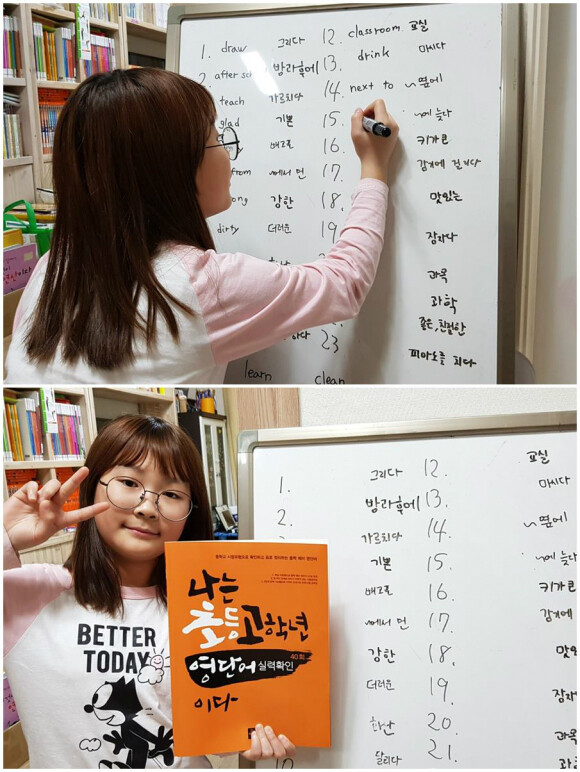 1. draw 그리다 12. classroom 교실
2 after sc 방과후에 13. drink 마시다
teach 가르치다 14. next to ~옆에
glad 기쁜 15. ~에 늦다
배고픈 16. 키가 큰
from ~에서 먼 17. 감기에 걸리다
ong 강한 18. 맛있는
dirty 더러운 19 잠자다
과목
과학
좋은, 친절한
하다 23 피아노를 치다
learn clean
나는
초등고학년
영단어 실력확인
40회
이다
BETTER
TODAY
1. 그리다 12. 교실
2. 방과후에 13. 마시다
가르치다 14. ~옆에
기쁜 15. ~에 늦다
배고픈 16. 키가 큰
~에서 먼 17. 감기에
강한 18. 맛있
더러운 19. 잠자
화난 20. 과목
달리다 21. 과